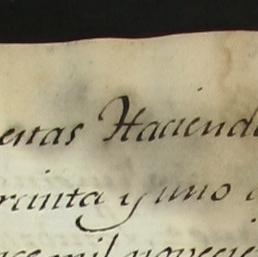 estas Haciend
reinta y uno
mil novecie